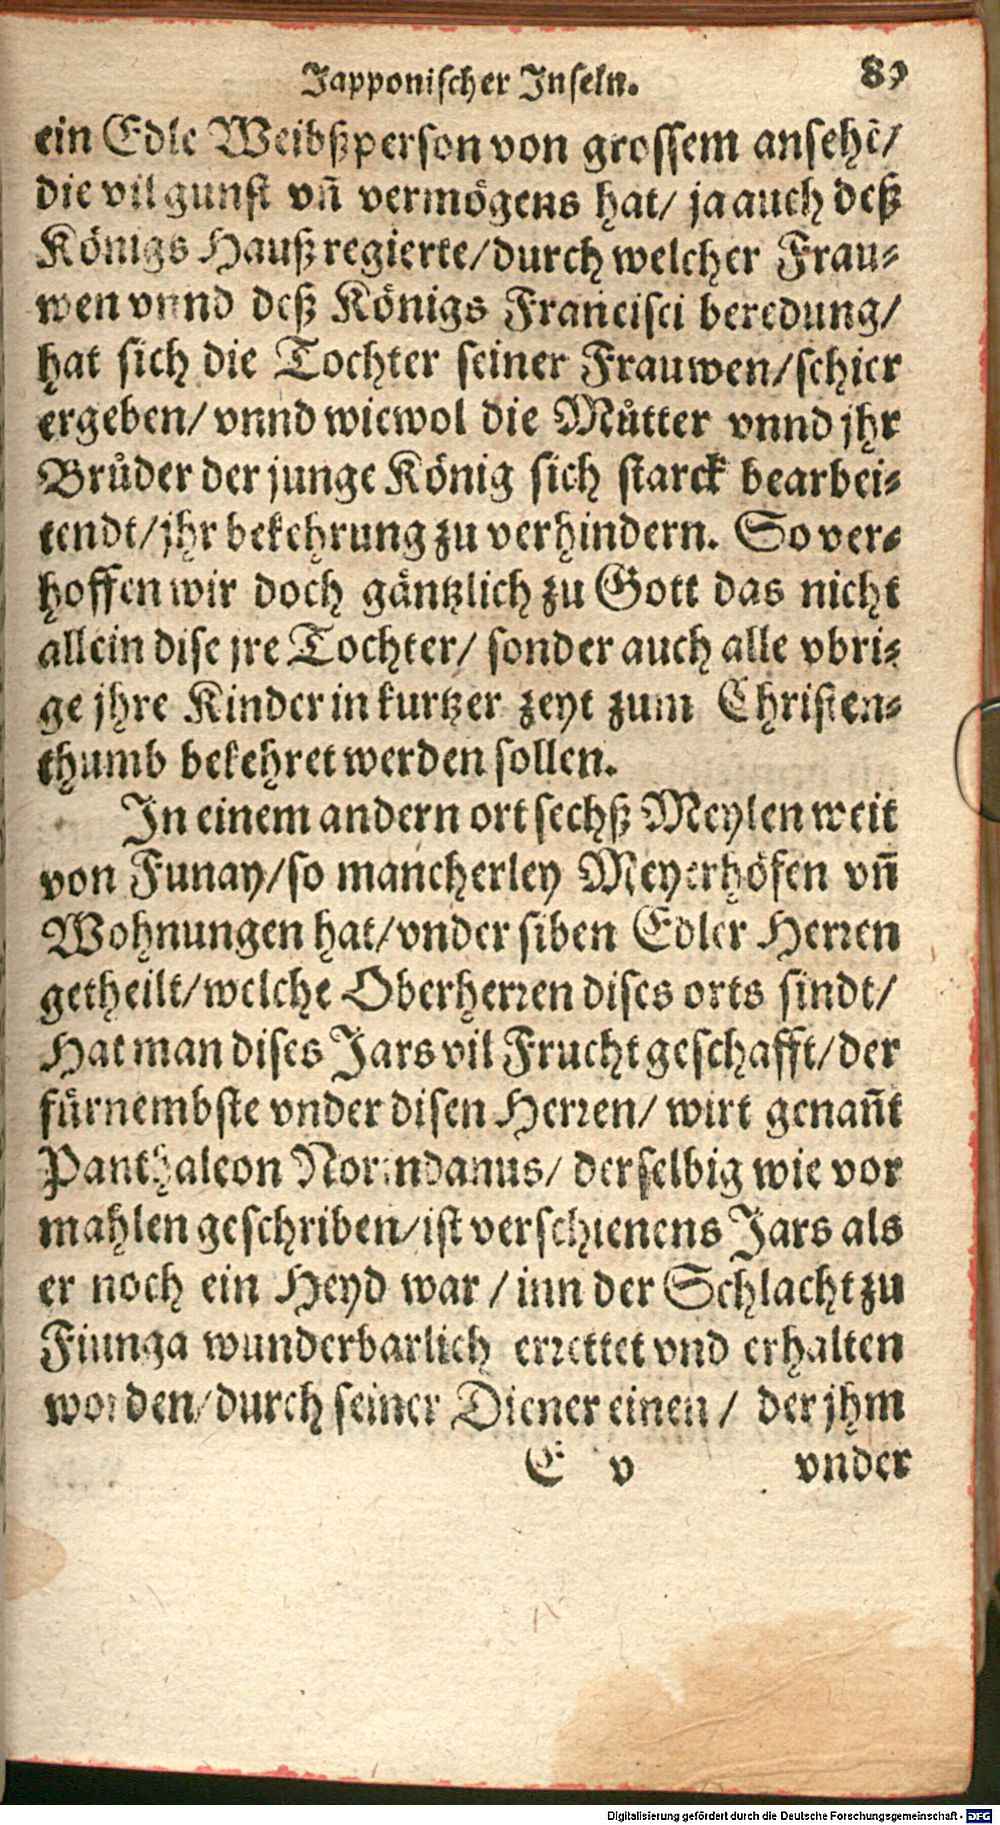 Japponischer Inseln. 89
ein Edle Weibßperson von grossem ansehẽ/
die vil gunst vñ vermögens hat/ ja auch deß
Königs Hauß regierte/durch welcher Frau⸗
wen vnnd deß Königs Francisci beredung/
hat sich die Tochter seiner Frauwen/schier
ergeben/ vnnd wiewol die Můtter vnnd jhr
Brůder der junge König sich starck bearbei⸗
tendt/jhr bekehrung zu verhindern. So ver⸗
hoffen wir doch gäntzlich zu Gott das nicht
allein dise jre Tochter/ sonder auch alle vbri⸗
ge jhre Kinder in kurtzer zeyt zum Christen⸗
thumb bekehret werden sollen.
In einem andern ort sechß Meylen weit
von Funay/so mancherley Meyerhöfen vñ
Wohnungen hat/vnder siben Edler Herren
getheilt/welche Oberherren dises orts sindt/
Hat man dises Jars vil Frucht geschafft/der
fürnembste vnder disen Herren/ wirt genañt
Panthaleon Norindanus/ derselbig wie vor
mahlen geschriben/ist verschienens Jars als
er noch ein Heyd war / inn der Schlacht zu
Fiunga wunderbarlich errettet vnd erhalten
worden/durch seiner Diener einen / der jhm
E v vnder
Digitalisierung gefördert durch die Deutsche Forschungsgemeinschaft - DFG